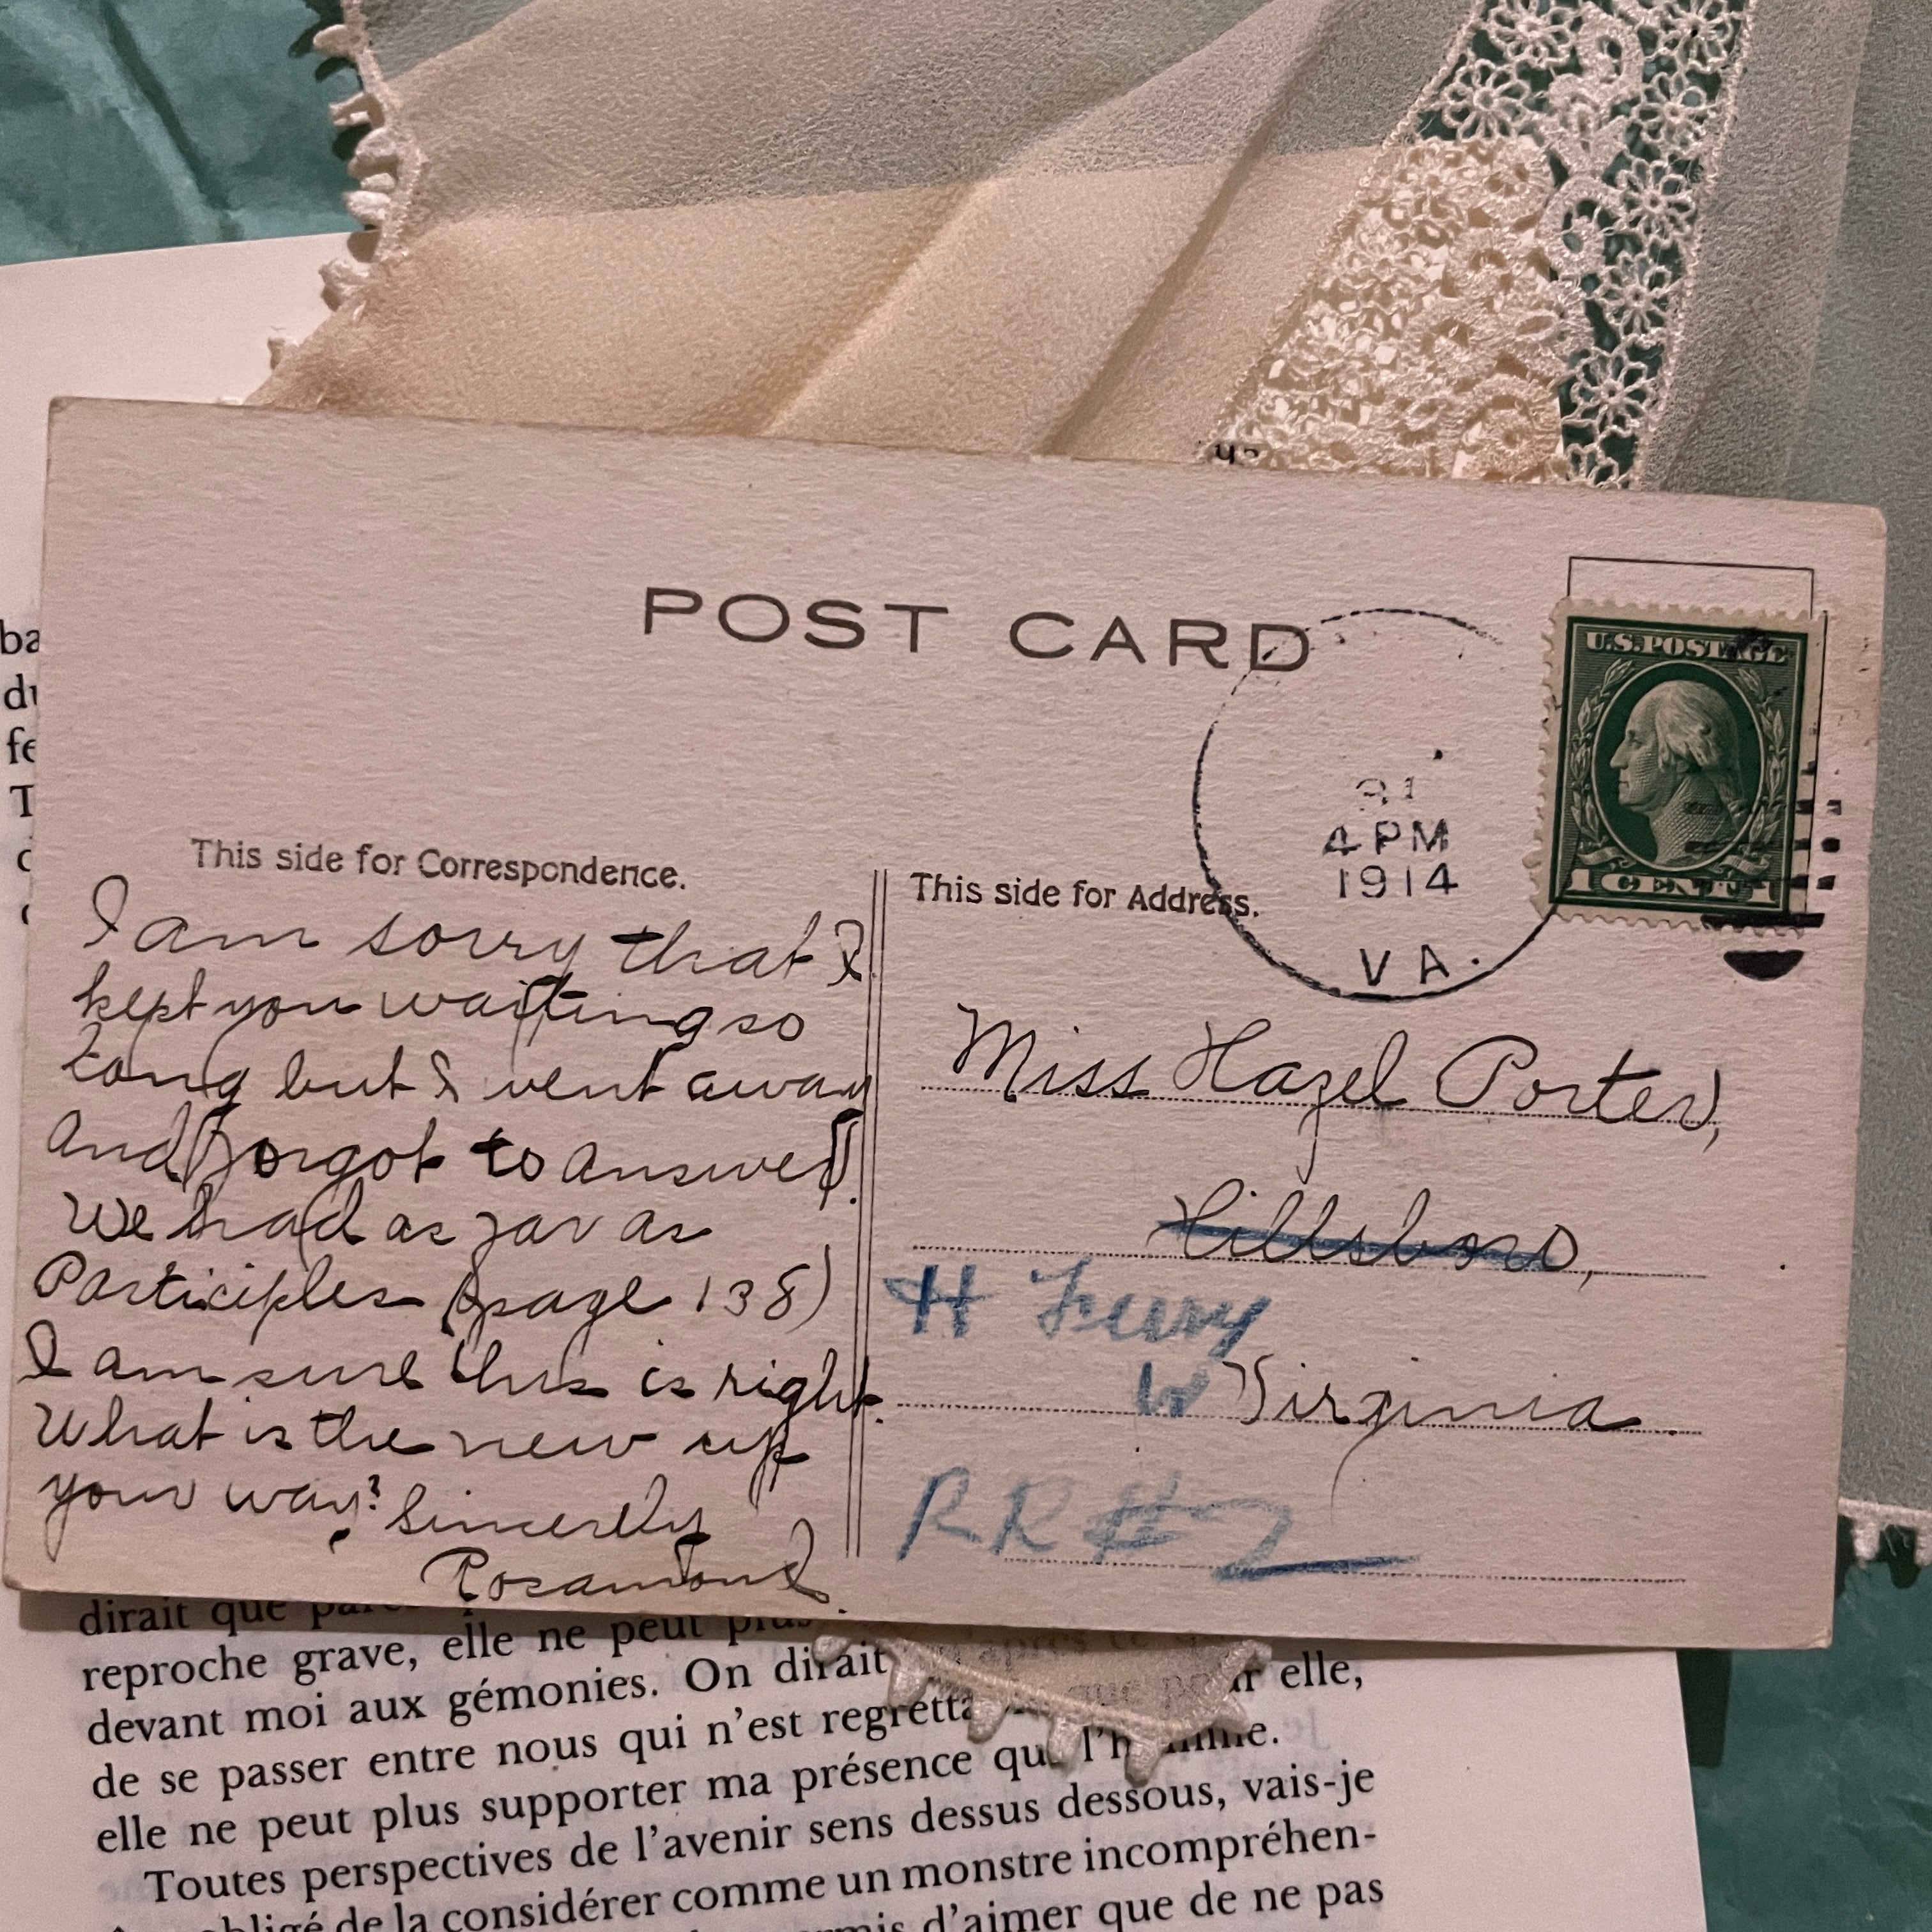 POST CARD
U.S. POSTAGE
31
4 PM
1914
VA.
1 CENTS 1
This side for Correspondence.
This side for Address.
I am sorry that I
kept you waiting so
long but I went away
and forgot to answer.
We had as far as
Participles (page 138)
I am sure this is right.
What is the new up
your way? Sincerely
Rosamond.
Miss Hazel Porter,
Hillsboro,
H Ferry
W Virginia
RR #2
ba
du
fe
T
dirait que
reproche grave, elle ne peut plus
devant moi aux gémonies. On dirait elle,
de se passer entre nous qui n'est
elle ne peut plus supporter ma présence
Toutes perspectives de l'avenir sens dessus dessous, vais-je
de la considérer comme un monstre incompréhen-
d'aimer que de ne pas